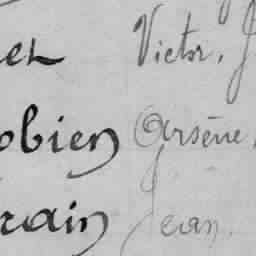 Victor, J
obien Arsène,
rain Jean.